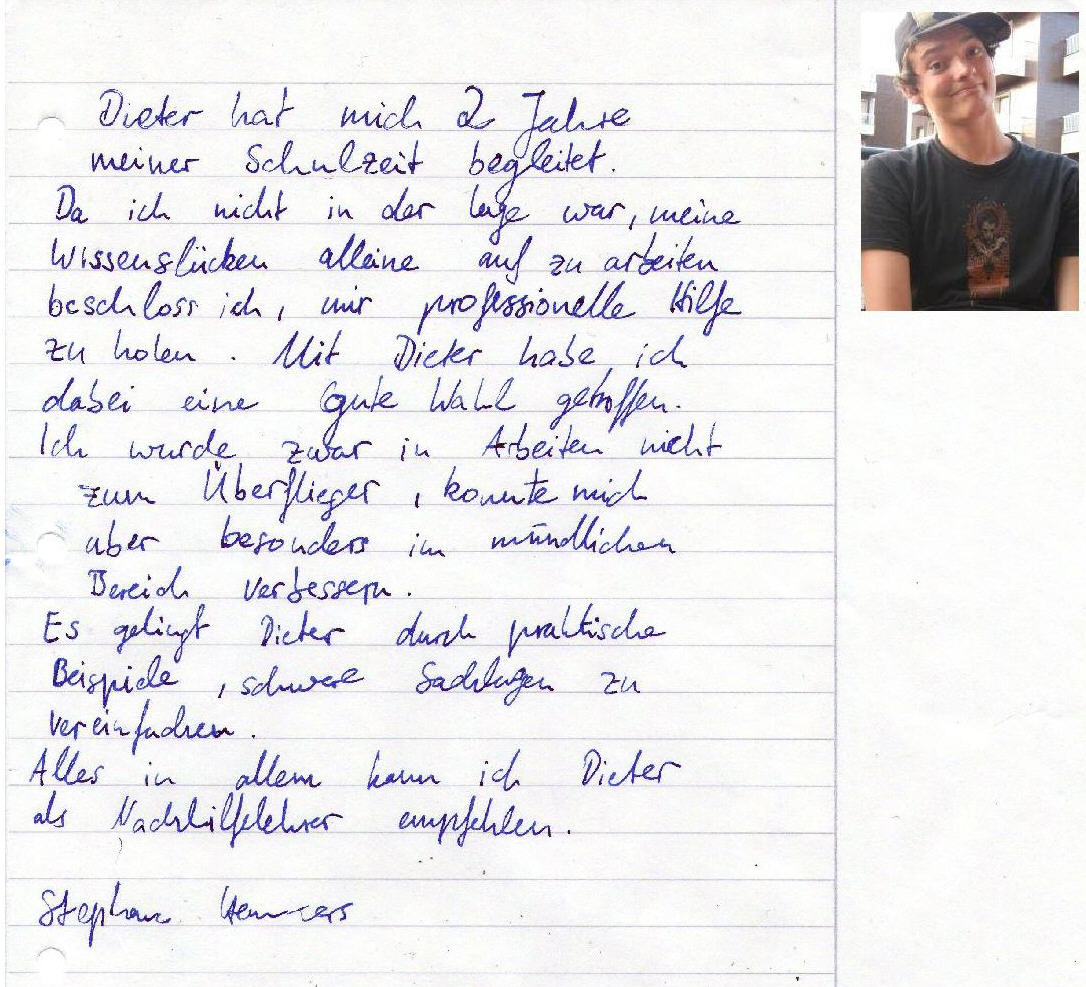 Dieter hat mich 2 Jahre
meiner Schulzeit begleitet.
Da ich nicht in der lage war, meine
Wissenslücken alleine auf zu arbeiten
beschloss ich, mir professionelle Hilfe
zu holen. Mit Dieter habe ich
dabei eine gute Wahl getroffen.
Ich wurde zwar in Arbeiten nicht
zum Überflieger, konnte mich
aber besonders im mündlichen
Bereich verbessern.
Es gelingt Dieter durch praktische
Beispiele, schwere Sachlagen zu
vereinfachen.
Alles in allem kann ich Dieter
als Nachhilfelehrer empfehlen.
Stephan